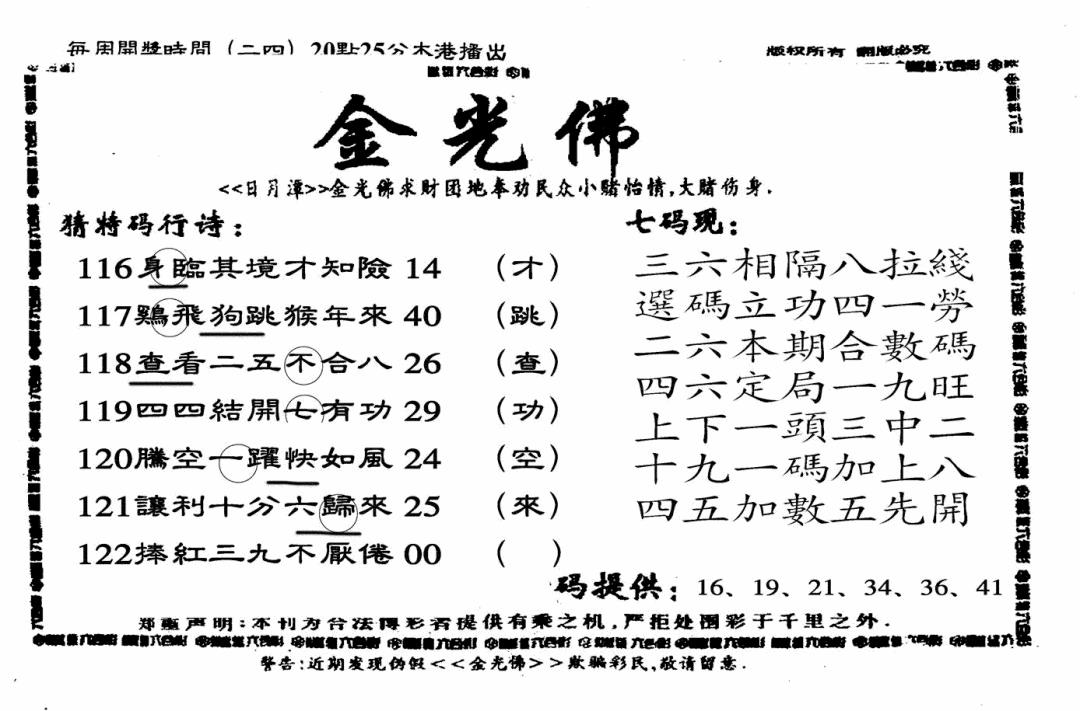 每周開獎時間（二四）20點25分本港播出
版权所有 翻版必究
金光佛
<<日月潭>>金光佛求财团地奉劝民众小赌怡情,大赌伤身.
猜特码行诗：
116身臨其境才知險 14 （才）
117鷄飛狗跳猴年來 40 （跳）
118查看二五不合八 26 （查）
119四四結開七有功 29 （功）
120騰空一躍快如風 24 （空）
121讓利十分六歸來 25 （來）
122捧紅三九不厭倦 00 （ ）
七码现：
三六相隔八拉綫
選碼立功四一勞
二六本期合數碼
四六定局一九旺
上下一頭三中二
十九一碼加上八
四五加數五先開
码提供：16、19、21、34、36、41
郑重声明:本刊为合法博彩者提供有乘之机,严拒处围彩于千里之外.
警告:近期发现伪假<<金光佛>>欺骗彩民,敬请留意.